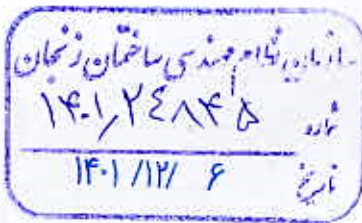 سازمان نظام مهندسی ساختمان زنجان
شماره ۱۴۰۱٫۲۴۸۴۵
تاریخ ۱۴۰۱/۱۲/ ۶